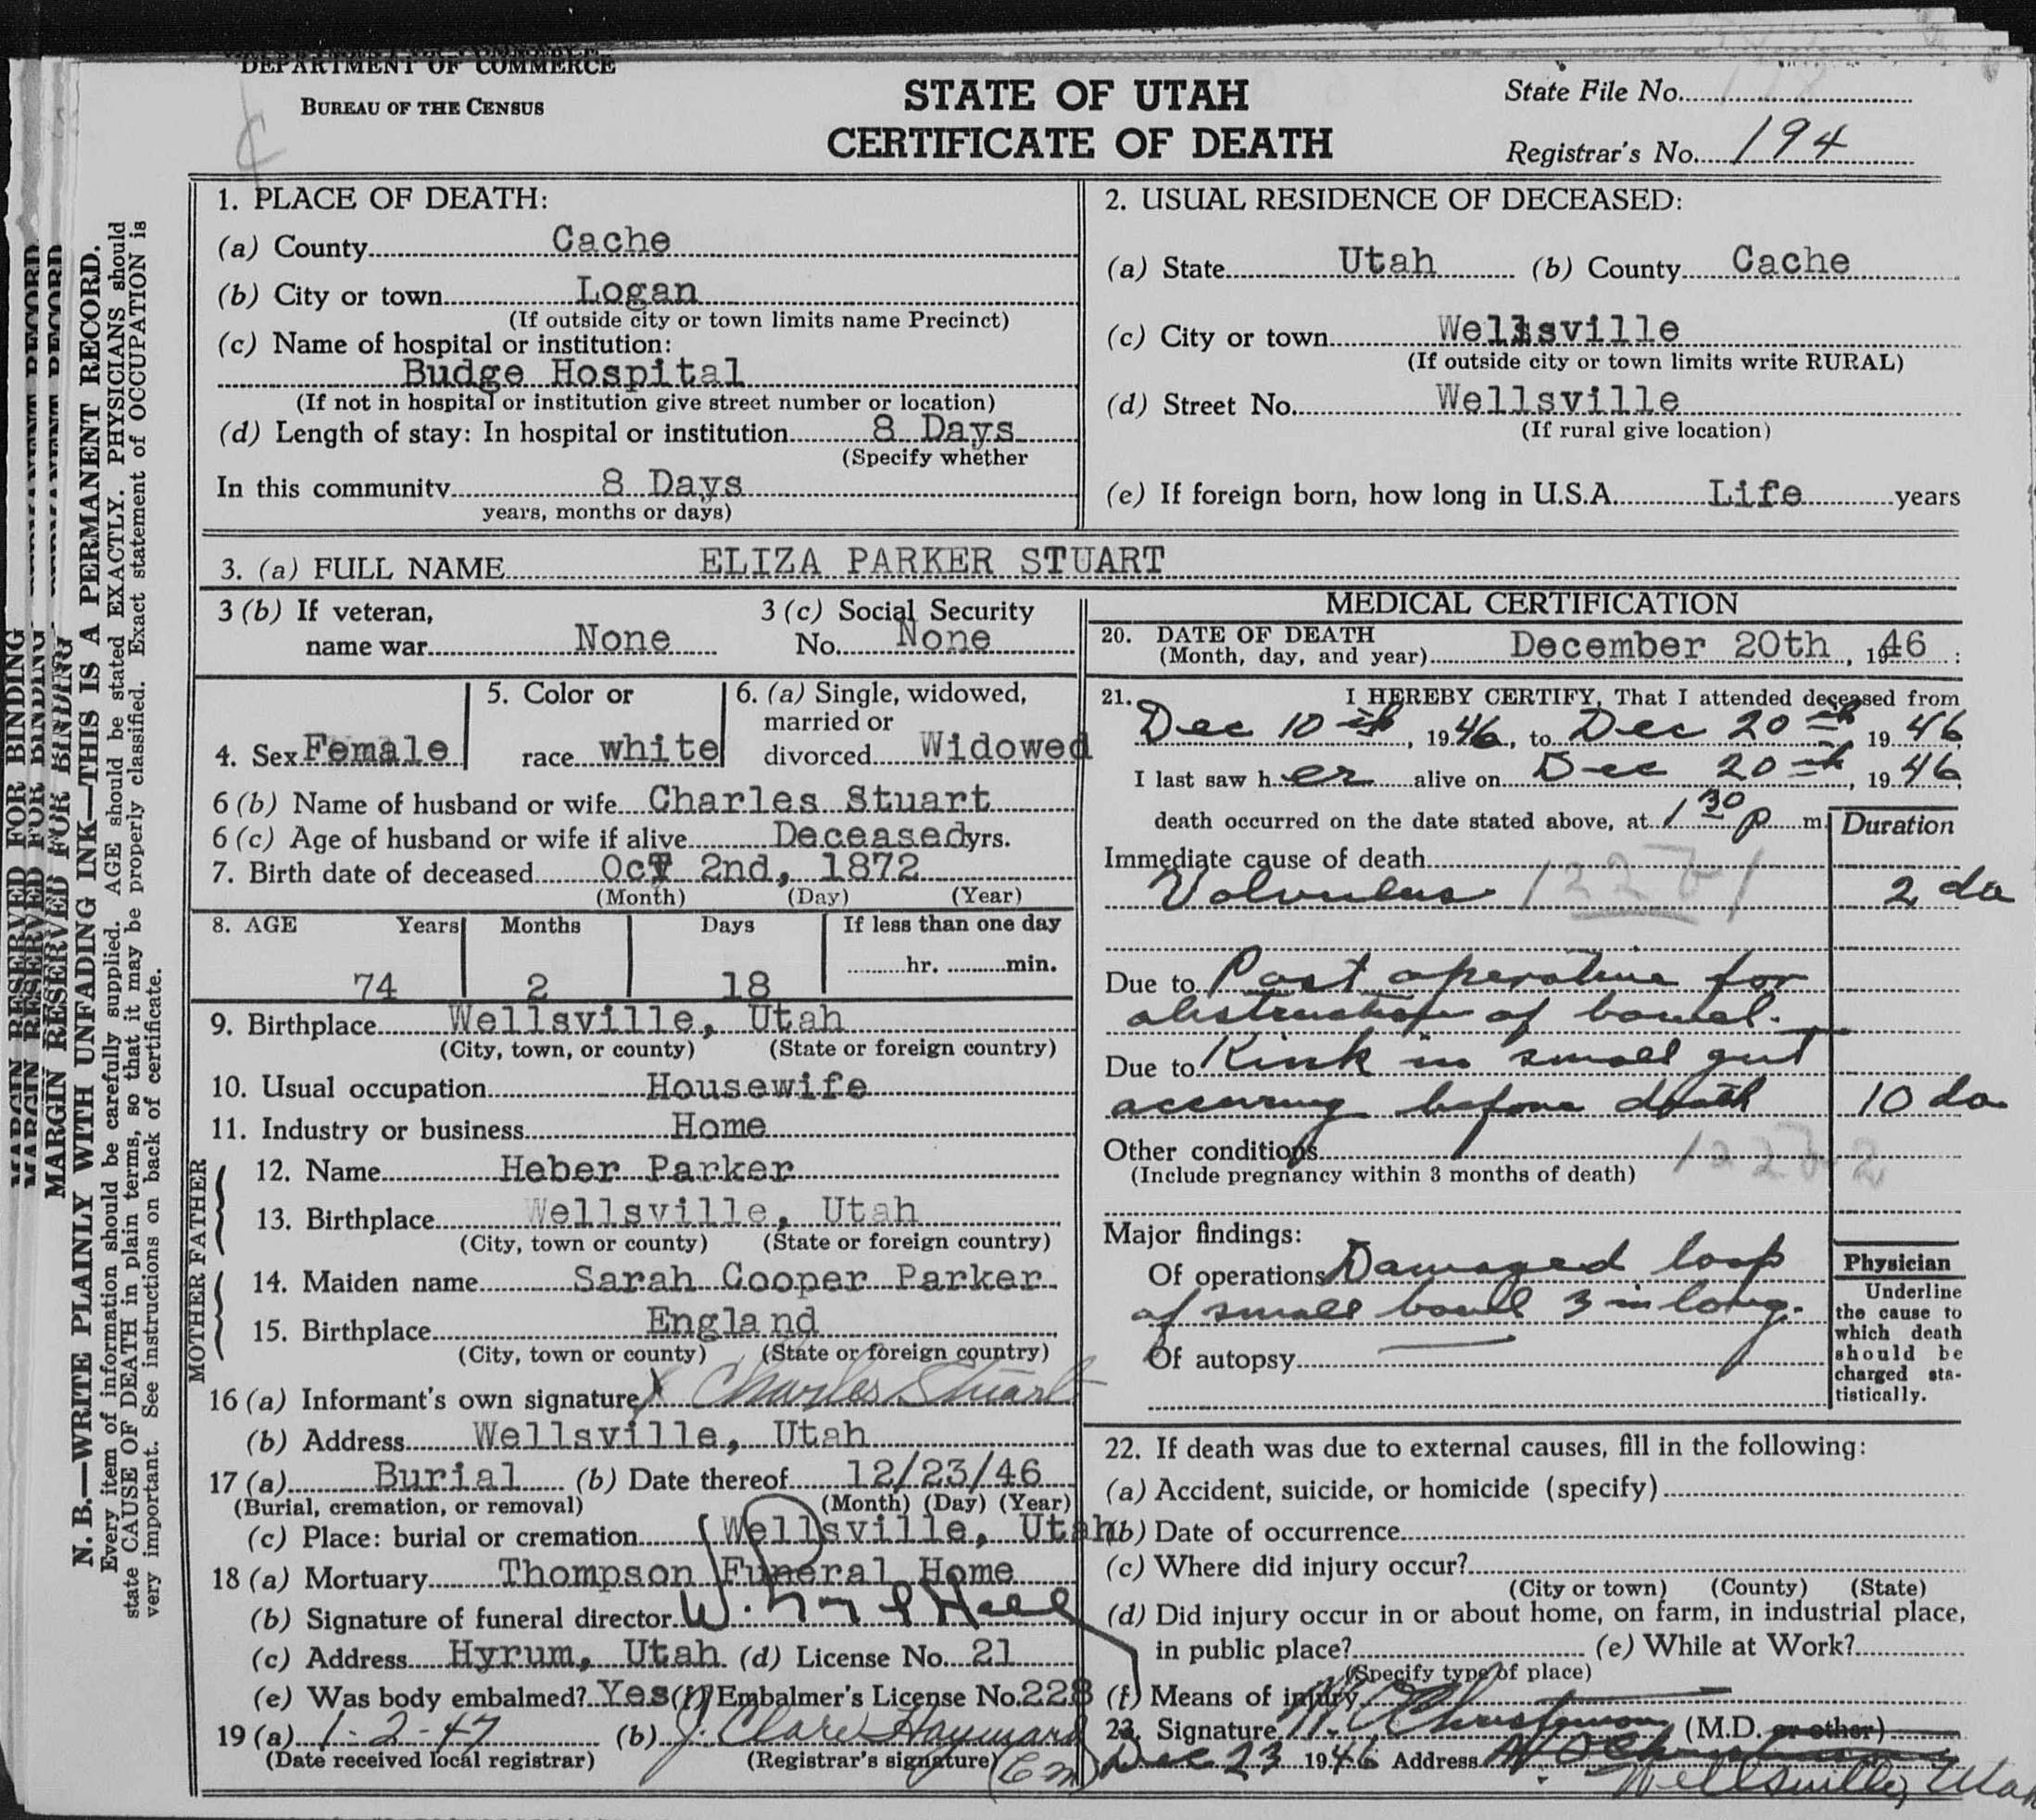 DEPARTMENT OF COMMERCE
BUREAU OF THE CENSUS
STATE OF UTAH
CERTIFICATE OF DEATH
State File No.
Registrar's No. 194
MARGIN RESERVED FOR BINDING
N. B.—WRITE PLAINLY WITH UNFADING INK—THIS IS A PERMANENT RECORD.
Every item of information should be carefully supplied. AGE should be stated EXACTLY. PHYSICIANS should
state CAUSE OF DEATH in plain terms, so that it may be properly classified. Exact statement of OCCUPATION is
very important. See instructions on back of certificate.
1. PLACE OF DEATH:
(a) County Cache
(b) City or town Logan
(If outside city or town limits name Precinct)
(c) Name of hospital or institution:
Budge Hospital
(If not in hospital or institution give street number or location)
(d) Length of stay: In hospital or institution 8 Days
(Specify whether
In this community 8 Days
years, months or days)
2. USUAL RESIDENCE OF DECEASED:
(a) State Utah (b) County Cache
(c) City or town Wellsville
(If outside city or town limits write RURAL)
(d) Street No. Wellsville
(If rural give location)
(e) If foreign born, how long in U.S.A. Life years
3. (a) FULL NAME ELIZA PARKER STUART
3 (b) If veteran,
name war None
3 (c) Social Security
No. None
4. Sex Female
5. Color or
race white
6. (a) Single, widowed,
married or
divorced Widowed
6 (b) Name of husband or wife Charles Stuart
6 (c) Age of husband or wife if alive Deceased yrs.
7. Birth date of deceased Oct 2nd, 1872
(Month) (Day) (Year)
8. AGE Years Months Days If less than one day
hr. min.
74 2 18
9. Birthplace Wellsville, Utah
(City, town, or county) (State or foreign country)
10. Usual occupation Housewife
11. Industry or business Home
FATHER
12. Name Heber Parker
13. Birthplace Wellsville, Utah
(City, town or county) (State or foreign country)
MOTHER
14. Maiden name Sarah Cooper Parker
15. Birthplace England
(City, town or county) (State or foreign country)
16 (a) Informant's own signature X Charles Stuart
(b) Address Wellsville, Utah
17 (a) Burial (b) Date thereof 12/23/46
(Burial, cremation, or removal) (Month) (Day) (Year)
(c) Place: burial or cremation Wellsville, Utah
18 (a) Mortuary Thompson Funeral Home
(b) Signature of funeral director W. Hall
(c) Address Hyrum, Utah (d) License No. 21
(e) Was body embalmed? Yes (f) Embalmer's License No. 228
19 (a) 1-2-47 (b) J. Clare Hayward
(Date received local registrar) (Registrar's signature)
MEDICAL CERTIFICATION
20. DATE OF DEATH
(Month, day, and year) December 20th, 1946
21. I HEREBY CERTIFY, That I attended deceased from
Dec 10th, 1946, to Dec 20th, 1946
I last saw her alive on Dec 20th, 1946,
death occurred on the date stated above, at 1 30 p m. Duration
Immediate cause of death
Volvulus 2 da
Due to Post operative for
obstruction of bowel.
Due to Kink in small gut
occuring before death 10 da
Other conditions
(Include pregnancy within 3 months of death)
Major findings:
Of operations Damaged loop
of small bowel 3 in long.
Of autopsy
Physician
Underline
the cause to
which death
should be
charged sta-
tistically.
22. If death was due to external causes, fill in the following:
(a) Accident, suicide, or homicide (specify)
(b) Date of occurrence
(c) Where did injury occur?
(City or town) (County) (State)
(d) Did injury occur in or about home, on farm, in industrial place,
in public place? (e) While at Work?
(Specify type of place)
(f) Means of injury
23. Signature (M.D. or other)
Dec 23 1946 Address
Wellsville, Utah